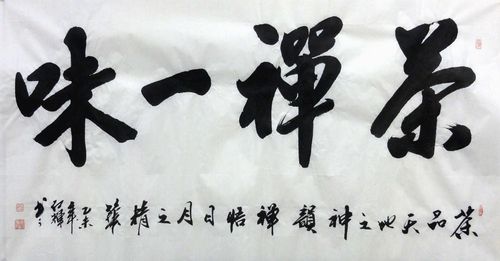 茶禪一味
茶品天地之神韻 禪悟日月之精華
乙未年